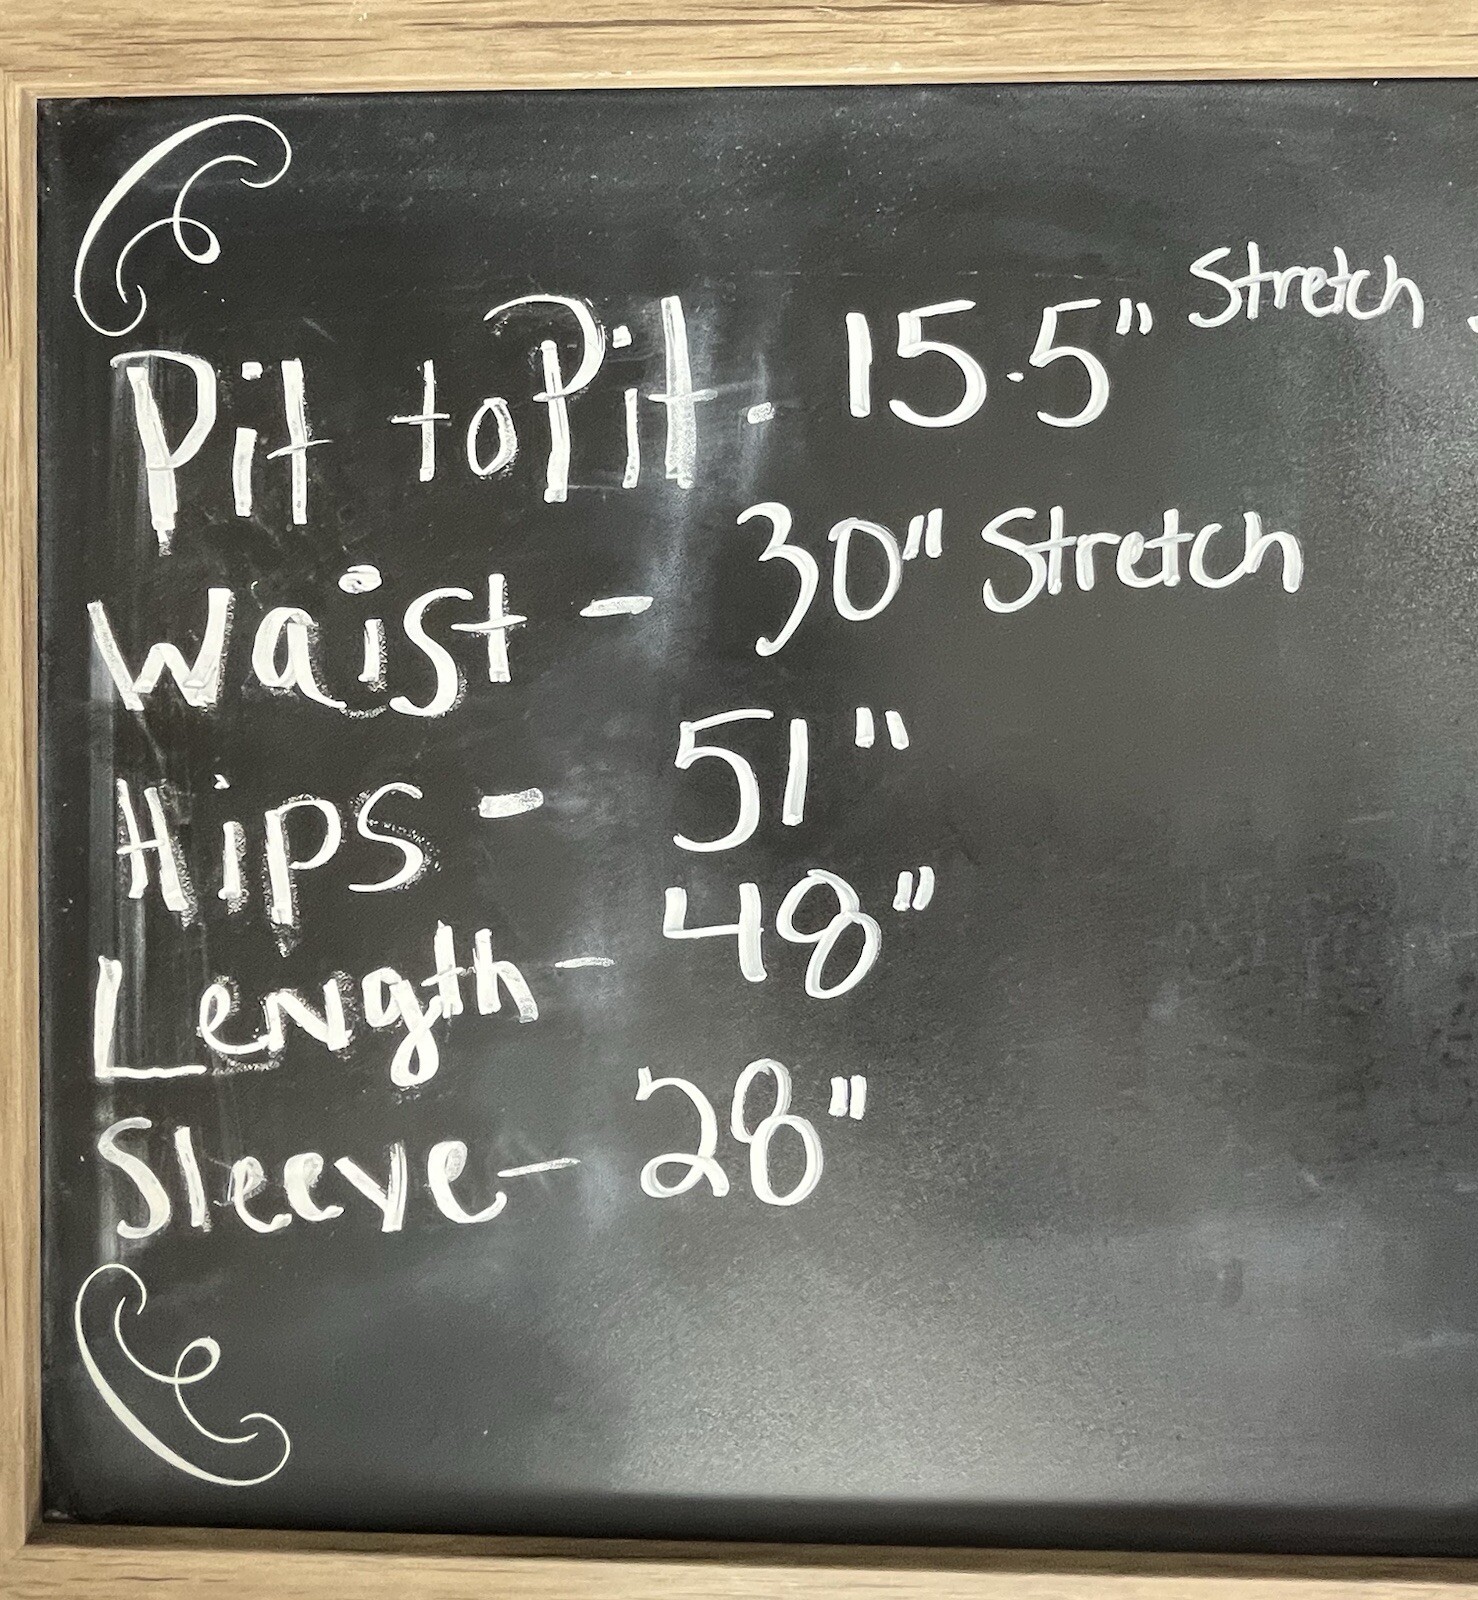 Pit to Pit - 15.5" Stretch
Waist - 30" Stretch
Hips - 51"
Length - 48"
Sleeve - 28"